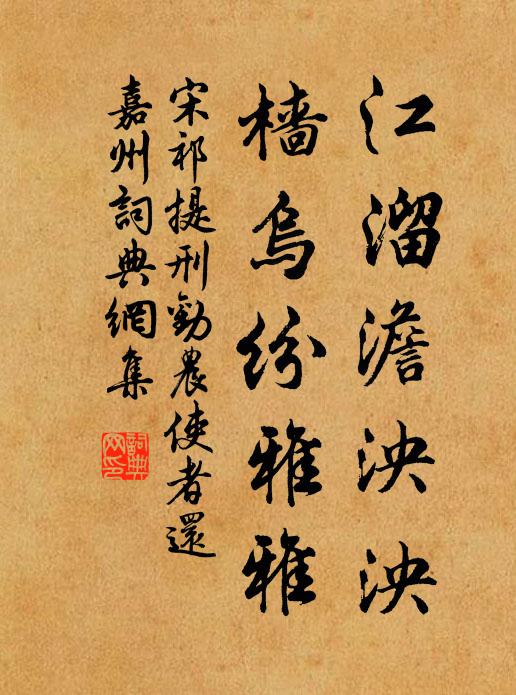 江溜澹泱泱
檣烏紛雅雅
宋祁提刑勸農使者還
嘉州詞典網集
詞典網印